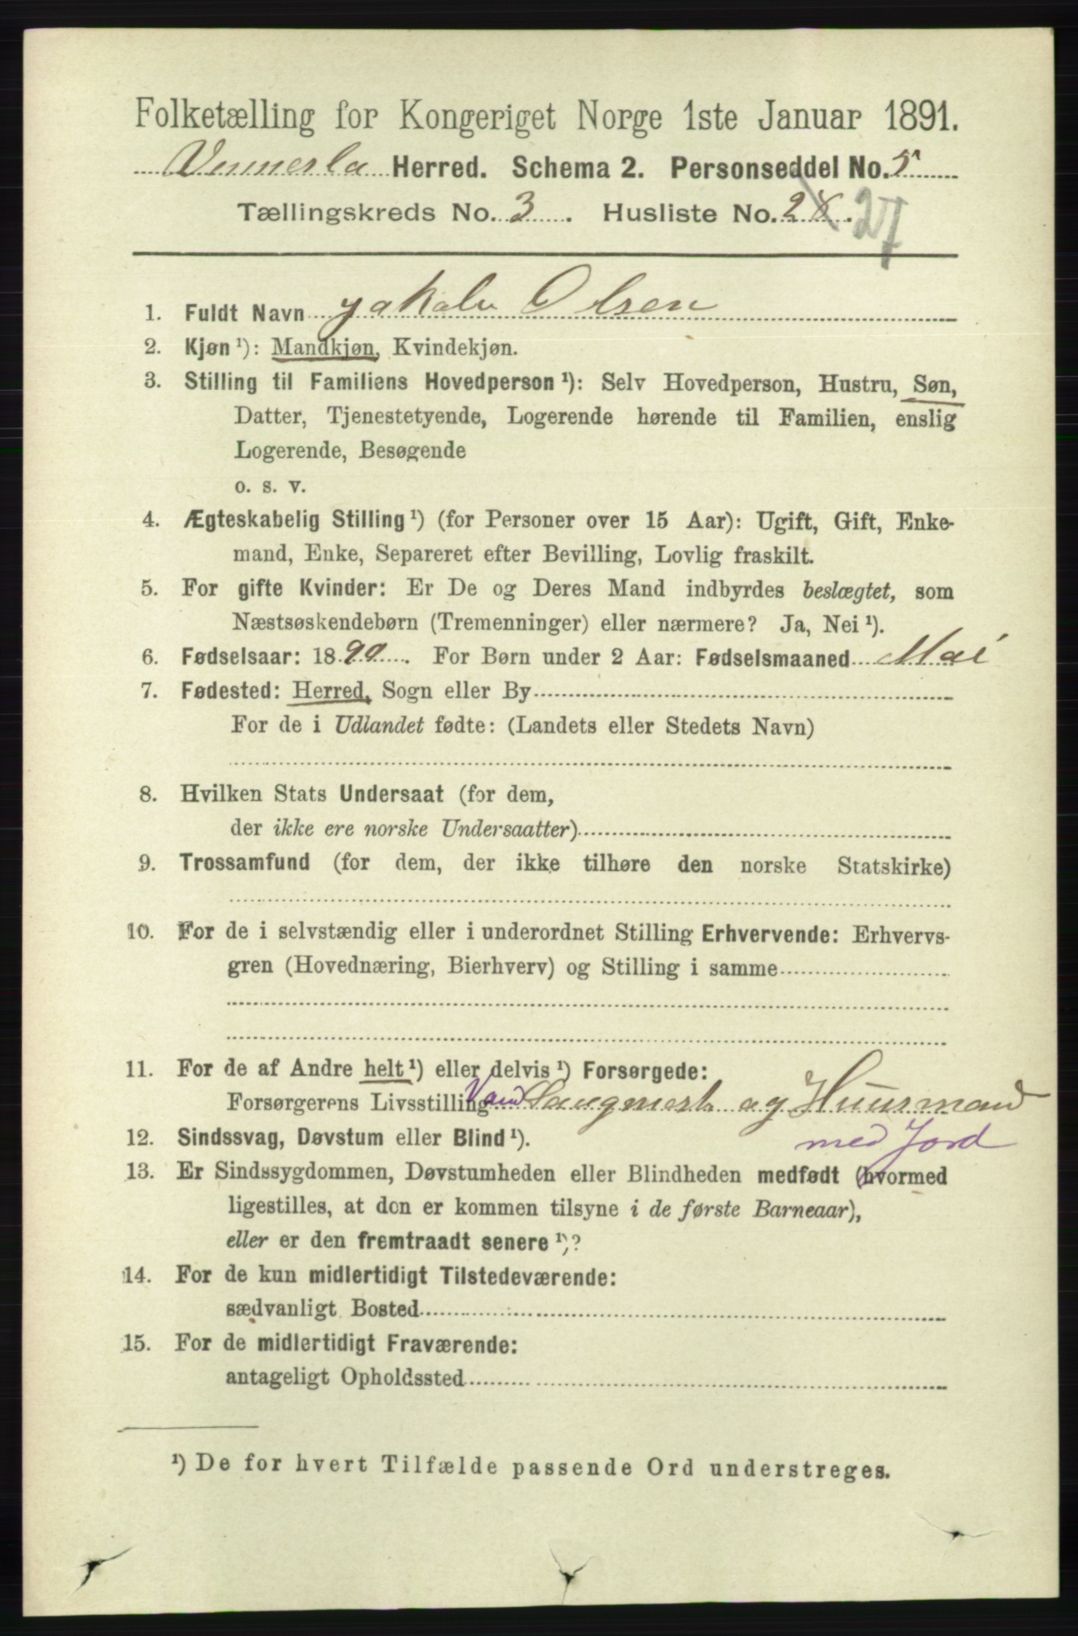 Folketælling for Kongeriget Norge 1ste Januar 1891.
Vennesla Herred. Schema 2. Personseddel No. 5
Tællingskreds No. 3. Husliste No. 28. 27
1. Fuldt Navn Jakob Olsen
2. Kjøn ¹): Mandkjøn, Kvindekjøn.
3. Stilling til Familiens Hovedperson ¹): Selv Hovedperson, Hustru, Søn,
Datter, Tjenestetyende, Logerende hørende til Familien, enslig
Logerende, Besøgende
o. s. v.
4. Ægteskabelig Stilling ¹) (for Personer over 15 Aar): Ugift, Gift, Enke-
mand, Enke, Separeret efter Bevilling, Lovlig fraskilt.
5. For gifte Kvinder: Er De og Deres Mand indbyrdes beslægtet, som
Næstsøskendebørn (Tremenninger) eller nærmere? Ja, Nei ¹).
6. Fødselsaar: 1890. For Børn under 2 Aar: Fødselsmaaned Mai
7. Fødested: Herred, Sogn eller By
For de i Udlandet fødte: (Landets eller Stedets Navn)
8. Hvilken Stats Undersaat (for dem,
der ikke ere norske Undersaatter)
9. Trossamfund (for dem, der ikke tilhøre den norske Statskirke)
10. For de i selvstændig eller i underordnet Stilling Erhvervende: Erhvervs-
gren (Hovednæring, Bierhverv) og Stilling i samme
11. For de af Andre helt ¹) eller delvis ¹) Forsørgede:
Forsørgerens Livsstilling Vand Saugmest. og Huusmand
med Jord
12. Sindssvag, Døvstum eller Blind ¹).
13. Er Sindssygdommen, Døvstumheden eller Blindheden medfødt (hvormed
ligestilles, at den er kommen tilsyne i de første Barneaar),
eller er den fremtraadt senere ¹)?
14. For de kun midlertidigt Tilstedeværende:
sædvanligt Bosted
15. For de midlertidigt Fraværende:
antageligt Opholdssted
¹) De for hvert Tilfælde passende Ord understreges.